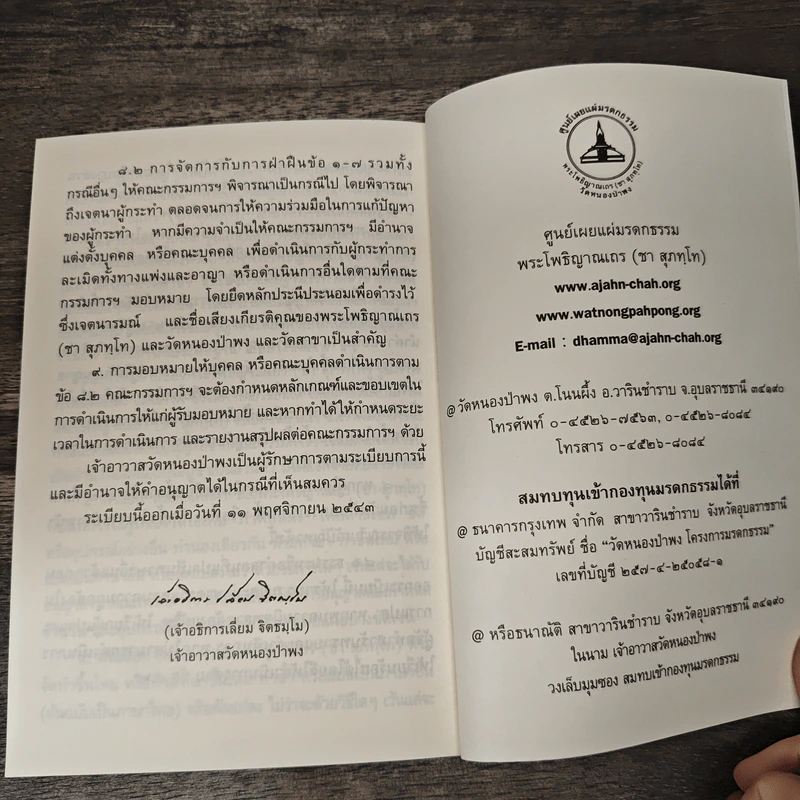 ๘.๒ การจัดการกับการฝ่าฝืนข้อ ๑-๗ รวมทั้ง
กรณีอื่นๆ ให้คณะกรรมการฯ พิจารณาเป็นกรณีไป โดยพิจารณา
ถึงเจตนาผู้กระทำ ตลอดจนการให้ความร่วมมือในการแก้ปัญหา
ของผู้กระทำ หากมีความจำเป็นให้คณะกรรมการฯ มีอำนาจ
แต่งตั้งบุคคล หรือคณะบุคคล เพื่อดำเนินการกับผู้กระทำการ
ละเมิดทั้งทางแพ่งและอาญา หรือดำเนินการอื่นใดตามที่คณะ
กรรมการฯ มอบหมาย โดยยึดหลักประนีประนอมเพื่อดำรงไว้
ซึ่งเจตนารมณ์ และชื่อเสียงเกียรติคุณของพระโพธิญาณเถร
(ชา สุภทฺโท) และวัดหนองป่าพง และวัดสาขาเป็นสำคัญ
๙. การมอบหมายให้บุคคล หรือคณะบุคคลดำเนินการตาม
ข้อ ๘.๒ คณะกรรมการฯ จะต้องกำหนดหลักเกณฑ์และขอบเขตใน
การดำเนินการให้แก่ผู้รับมอบหมาย และหากทำได้ให้กำหนดระยะ
เวลาในการดำเนินการ และรายงานสรุปผลต่อคณะกรรมการฯ ด้วย
เจ้าอาวาสวัดหนองป่าพงเป็นผู้รักษาการตามระเบียบการนี้
และมีอำนาจให้คำอนุญาตได้ในกรณีที่เห็นสมควร
ระเบียบนี้ออกเมื่อวันที่ ๑๑ พฤศจิกายน ๒๕๔๓
เจ้าอธิการ เลี่ยม จิตธมฺโม
(เจ้าอธิการเลี่ยม จิตธมฺโม)
เจ้าอาวาสวัดหนองป่าพง
ศูนย์เผยแผ่มรดกธรรม
พระโพธิญาณเถร (ชา สุภทฺโท)
วัดหนองป่าพง
ศูนย์เผยแผ่มรดกธรรม
พระโพธิญาณเถร (ชา สุภทฺโท)
www.ajahn-chah.org
www.watnongpahpong.org
E-mail : dhamma@ajahn-chah.org
@ วัดหนองป่าพง ต.โนนผึ้ง อ.วารินชำราบ จ.อุบลราชธานี ๓๔๑๙๐
โทรศัพท์ ๐-๔๕๒๖-๗๕๖๓, ๐-๔๕๒๖-๘๐๘๔
โทรสาร ๐-๔๕๒๖-๘๐๘๔
สมทบทุนเข้ากองทุนมรดกธรรมได้ที่
@ ธนาคารกรุงเทพ จำกัด สาขาวารินชำราบ จังหวัดอุบลราชธานี
บัญชีสะสมทรัพย์ ชื่อ "วัดหนองป่าพง โครงการมรดกธรรม"
เลขที่บัญชี ๒๕๗-๔-๒๕๐๕๘-๑
@ หรือธนาณัติ สาขาวารินชำราบ จังหวัดอุบลราชธานี ๓๔๑๙๐
ในนาม เจ้าอาวาสวัดหนองป่าพง
วงเล็บมุมซอง สมทบเข้ากองทุนมรดกธรรม